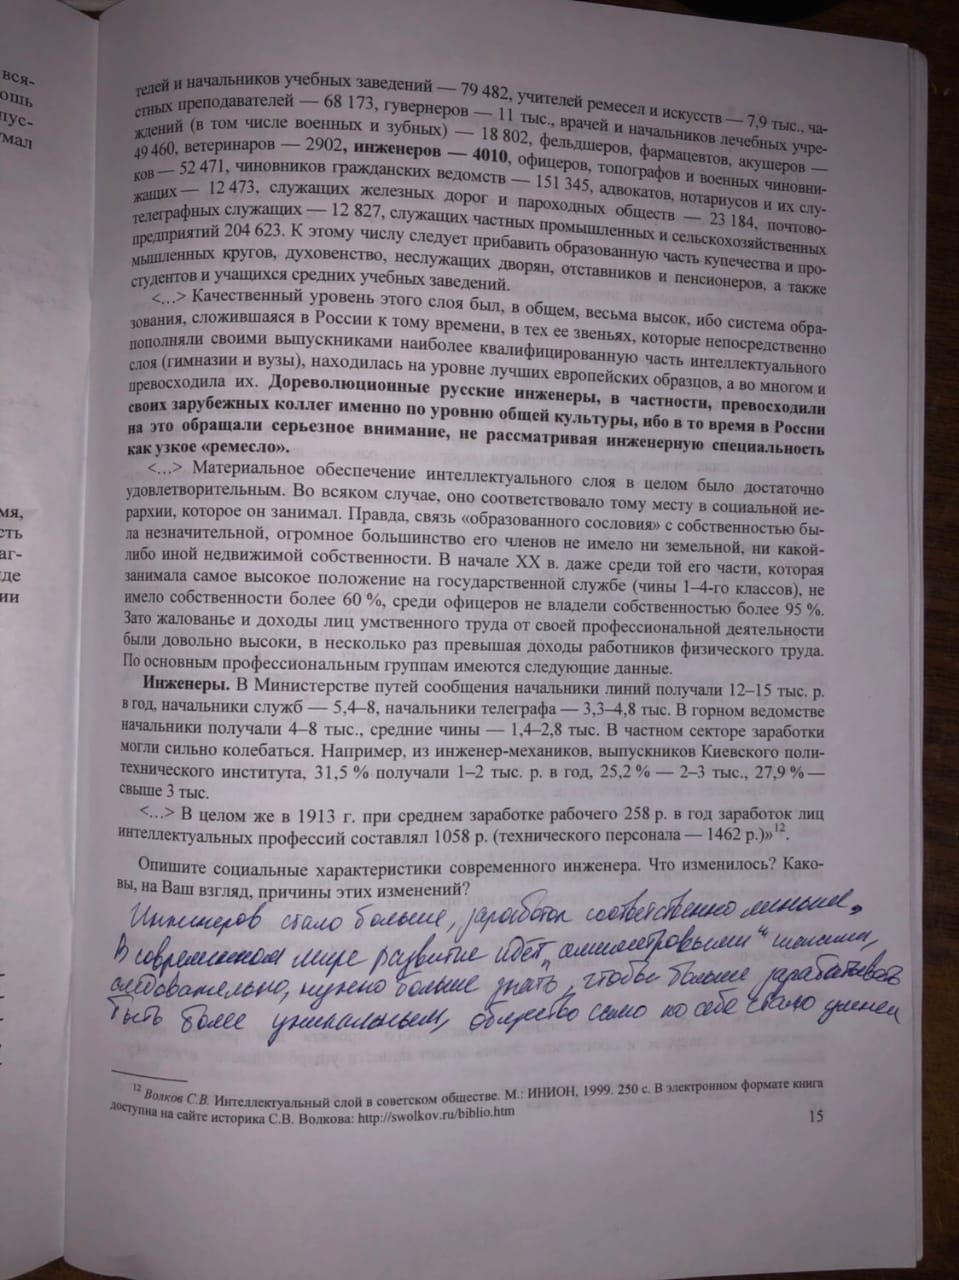 вся-
ошь
пус-
мал
мя,
сть
аг-
де
ии
телей и начальников учебных заведений — 79 482, учителей ремесел и искусств — 7,9 тыс., ча-
стных преподавателей — 68 173, гувернеров — 11 тыс., врачей и начальников лечебных учре-
ждений (в том числе военных и зубных) — 18 802, фельдшеров, фармацевтов, акушеров —
49 460, ветеринаров — 2902, инженеров — 4010, офицеров, топографов и военных чиновни-
ков — 52 471, чиновников гражданских ведомств — 151 345, адвокатов, нотариусов и их слу-
жащих — 12 473, служащих железных дорог и пароходных обществ — 23 184, почтово-
телеграфных служащих — 12 827, служащих частных промышленных и сельскохозяйственных
предприятий 204 623. К этому числу следует прибавить образованную часть купечества и про-
мышленных кругов, духовенство, неслужащих дворян, отставников и пенсионеров, а также
студентов и учащихся средних учебных заведений.
<...> Качественный уровень этого слоя был, в общем, весьма высок, ибо система обра-
зования, сложившаяся в России к тому времени, в тех ее звеньях, которые непосредственно
пополняли своими выпускниками наиболее квалифицированную часть интеллектуального
слоя (гимназии и вузы), находилась на уровне лучших европейских образцов, а во многом и
превосходила их. Дореволюционные русские инженеры, в частности, превосходили
своих зарубежных коллег именно по уровню общей культуры, ибо в то время в России
на это обращали серьезное внимание, не рассматривая инженерную специальность
как узкое «ремесло».
<...> Материальное обеспечение интеллектуального слоя в целом было достаточно
удовлетворительным. Во всяком случае, оно соответствовало тому месту в социальной ие-
рархии, которое он занимал. Правда, связь «образованного сословия» с собственностью бы-
ла незначительной, огромное большинство его членов не имело ни земельной, ни какой-
либо иной недвижимой собственности. В начале XX в. даже среди той его части, которая
занимала самое высокое положение на государственной службе (чины 1–4-го классов), не
имело собственности более 60 %, среди офицеров не владели собственностью более 95 %.
Зато жалованье и доходы лиц умственного труда от своей профессиональной деятельности
были довольно высоки, в несколько раз превышая доходы работников физического труда.
По основным профессиональным группам имеются следующие данные.
Инженеры. В Министерстве путей сообщения начальники линий получали 12–15 тыс. р.
в год, начальники служб — 5,4–8, начальники телеграфа — 3,3–4,8 тыс. В горном ведомстве
начальники получали 4–8 тыс., средние чины — 1,4–2,8 тыс. В частном секторе заработки
могли сильно колебаться. Например, из инженер-механиков, выпускников Киевского поли-
технического института, 31,5 % получали 1–2 тыс. р. в год, 25,2 % — 2–3 тыс., 27,9 % —
свыше 3 тыс.
<...> В целом же в 1913 г. при среднем заработке рабочего 258 р. в год заработок лиц
интеллектуальных профессий составлял 1058 р. (технического персонала — 1462 р.)»12.
Опишите социальные характеристики современного инженера. Что изменилось? Како-
вы, на Ваш взгляд, причины этих изменений?
Инженеров стало больше, заработок соответственно меньше.
В современном мире развитие идёт „семиметровыми" шагами,
следовательно, нужно больше знать, чтобы больше зарабатывать
Быть более уникальным, общество само по себе стало умнее
12 Волков С.В. Интеллектуальный слой в советском обществе. М.: ИНИОН, 1999. 250 с. В электронном формате книга
доступна на сайте историка С.В. Волкова: http://swolkov.ru/biblio.htm
15